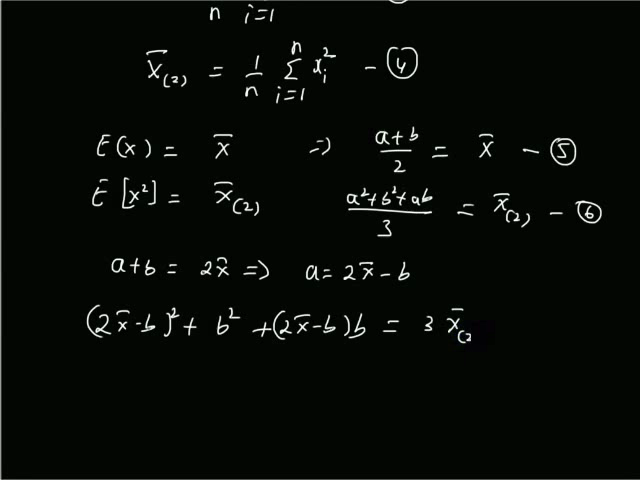 n i=1
x̄₍₂₎ = 1/n Σ_{i=1}^{n} xᵢ² - ④
E(x) = x̄ => (a+b)/2 = x̄ - ⑤
E[x²] = x̄₍₂₎ (a²+b²+ab)/3 = x̄₍₂₎ - ⑥
a+b = 2x̄ => a = 2x̄-b
(2x̄-b)² + b² + (2x̄-b)b = 3 x̄₍₂